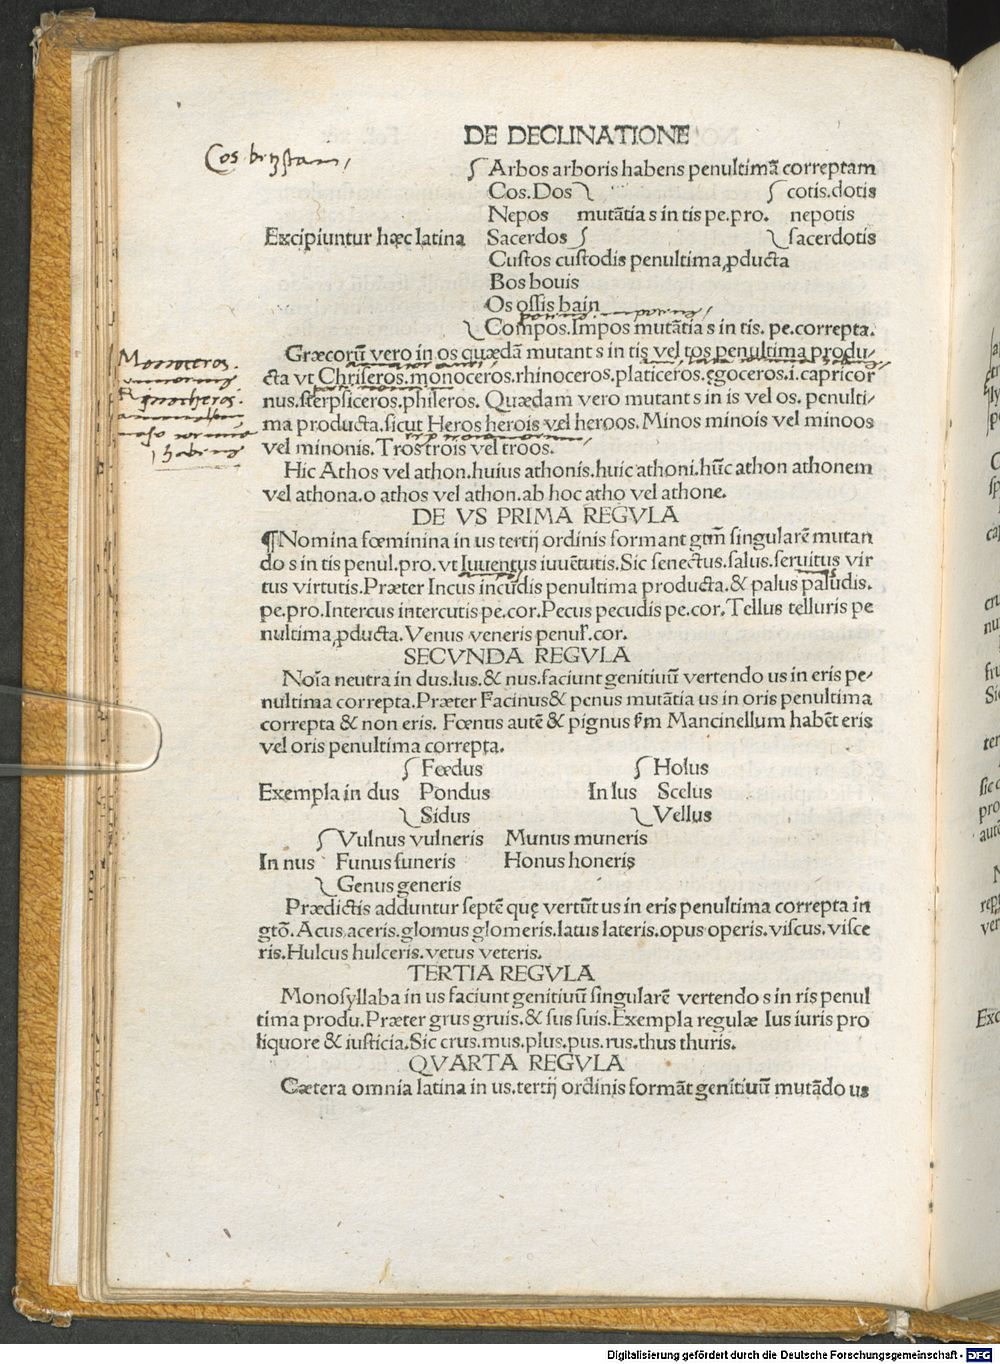 DE DECLINATIONE
Cos
Arbos arboris habens penultimā correptam
Cos.Dos cotis.dotis
Nepos mutātia s in tis pe.pro. nepotis
Excipiuntur hæc latina Sacerdos sacerdotis
Custos custodis penultima ꝓducta
Bos bouis
Os ossis bain
Compos.Impos mutātia s in tis. pe.correpta.
Monoceros.
Græcorū vero in os quædā mutant s in tis vel tos penultima produ-
cta vt Chriseros.monoceros.rhinoceros.platiceros.ęgoceros.i.capricor
nus.sterpsiceros.phileros. Quædam vero mutant s in is vel os. penulti-
ma producta.sicut Heros herois vel heroos. Minos minois vel minoos
vel minonis. Tros trois vel troos.
Hic Athos vel athon.huius athonis.huic athoni.hūc athon athonem
vel athona.o athos vel athon.ab hoc atho vel athone.
DE VS PRIMA REGVLA
¶Nomina fœminina in us tertij ordinis formant gtm̄ singularē mutan
do s in tis penul.pro.vt Iuuentus iuuētutis. Sic senectus.salus.seruitus vir
tus virtutis. Præter Incus incudis penultima producta.& palus paludis.
pe.pro.Intercus intercutis pe.cor.Pecus pecudis pe.cor.Tellus telluris pe
nultima ꝓducta. Venus veneris penul̄.cor.
SECVNDA REGVLA
Noīa neutra in dus.lus.& nus.faciunt genitiuū vertendo us in eris pe-
nultima correpta. Præter Facinus& penus mutātia us in oris penultima
correpta & non eris. Fœnus autē & pignus ẜm Mancinellum habēt eris
vel oris penultima correpta.
Fœdus Holus
Exempla in dus Pondus In lus Scelus
Sidus Vellus
Vulnus vulneris Munus muneris
In nus Funus funeris Honus honeris
Genus generis
Prædictis adduntur septē quę vertūt us in eris penultima correpta in
gtō. Acus aceris.glomus glomeris.latus lateris.opus operis.viscus.visce
ris.Hulcus hulceris.vetus veteris.
TERTIA REGVLA
Monosyllaba in us faciunt genitiuū singularē vertendo s in ris penul
tima produ.Præter grus gruis.& sus suis.Exempla regulæ Ius iuris pro
liquore & iusticia.Sic crus.mus.plus.pus.rus.thus thuris.
QVARTA REGVLA
Cætera omnia latina in us.tertij ordinis formāt genitiuū mutādo us
Digitalisierung gefördert durch die Deutsche Forschungsgemeinschaft - DFG